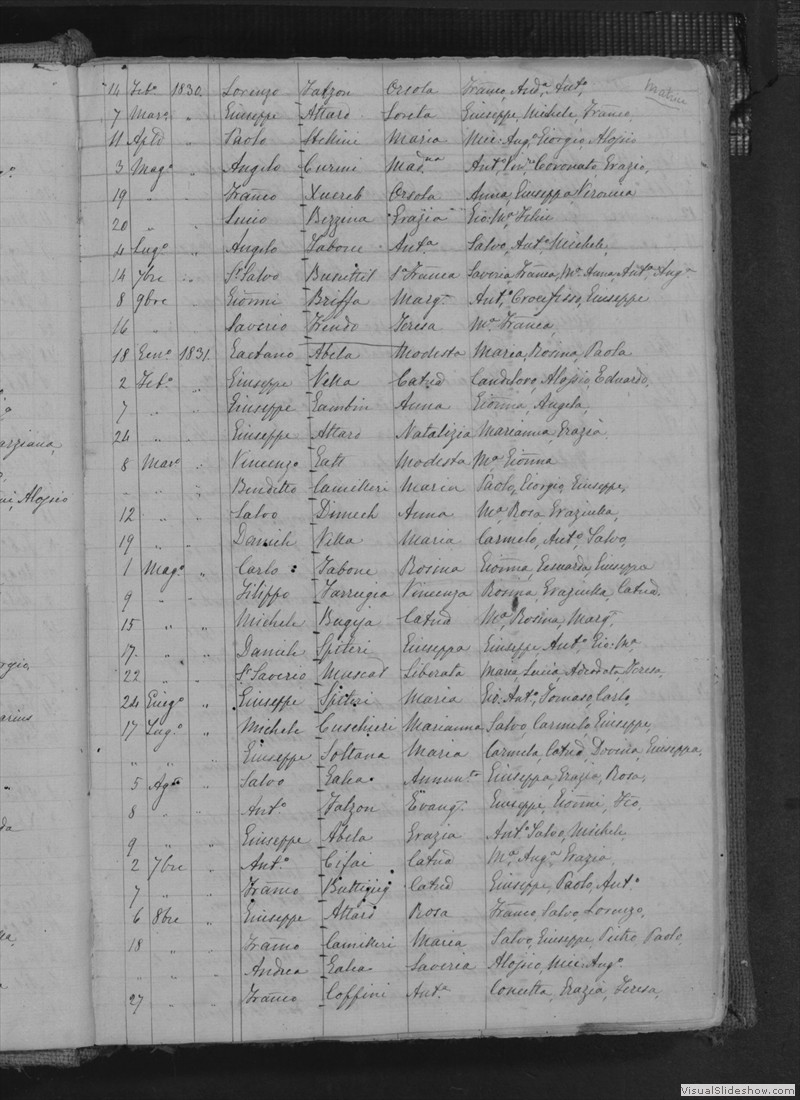 14 Feb.o 1830. Lorenzo Falzon Orsola Franco, And.a Ant.o matrice
7 Mar.o " Giuseppe Attard Loreta Giuseppe, Michele, Franco,
11 Apl.o " Paolo Stellini Maria Mic: Ang.o Giorgio, Aloisio
3 Mag.o " Angelo Curmi Mad.na Ant.o Coronato, Grazio,
19 " " Franco Xuereb Orsola Anna, Giuseppa Veronica
20 " " Lucio Bezzina Grazia Gio: M.a Felice
4 Lug.o " Angelo Tabone Ant.a Salvo, Ant.o Michele,
14 7bre " Salvo Busuttil Franca Saveria, Franca, M.a Anna, Ant.a Ang.a
8 9bre " Gionni Briffa Marg.a Ant.o Crocifisso, Giuseppe
16 " Saverio Fendo Teresa M.a Franca
18 Gen.o 1831. Gaetano Abela Modesta Maria, Rosina, Paola
2 Feb.o " Giuseppe Vella Catad Candiloro, Aloisio, Eduardo,
7 " " Giuseppe Gambin Anna Gionna, Angela,
24 " " Giuseppe Attard Natalizia Marianna, Grazia
8 Mar.o " Vincenzo Gatt Modesta M.a Gionna
" " " Benditto Camilleri Maria Paolo, Giorgio, Giuseppe,
12 " " Salvo Dimech Anna M.a Rosa, Graziulla,
19 " " Daniele Vella Maria Carmelo, Ant.o Salvo,
1 Mag.o " Carlo Tabone Rosina Gionna, Giuseppa
9 " " Filippo Farrugia Vincenza Rosina, Graziulla, Catad.
15 " " Michele Bugeja Catad M.a Rosina, Marg.a
17 " " Daniele Spiteri Giuseppa Giuseppe, Ant.o Gio: M.a
22 " " Saverio Muscat Liberata Maria, Lucia, Adeodata, Teresa,
24 Giug.o " Giuseppe Spiteri Maria Gio: Ant.o Tomaso, Carlo,
17 Lug.o " Michele Cuschieri Marianna Salvo, Carmelo, Giuseppe,
" " " Giuseppe Soltana Maria Carmela, Catad, Giuseppa,
5 Ag.to " Salvo Galea Annun.ta Giuseppa, Grazia, Rosa,
8 " Ant.o Falzon Evang.a Giuseppe, Gionni, Fco
9 " " Giuseppe Abela Grazia Ant.o Salvo, Michele,
2 7bre " Ant.o Cifai Catad M.a Ang.a Grazia,
7 " " Franco Buttigieg Catad Giuseppe, Paolo, Ant.o
6 8bre " Giuseppe Attard Rosa Franco, Salvo, Lorenzo,
18 " " Franco Camilleri Maria Salvo, Giuseppe, Pietro, Paolo,
" " " Andrea Galea Saveria Aloisio, Mic: Ang.o
27 " " Franco Coffini Ant.a Concetta, Grazia, Teresa,
VisualSlideshow.com